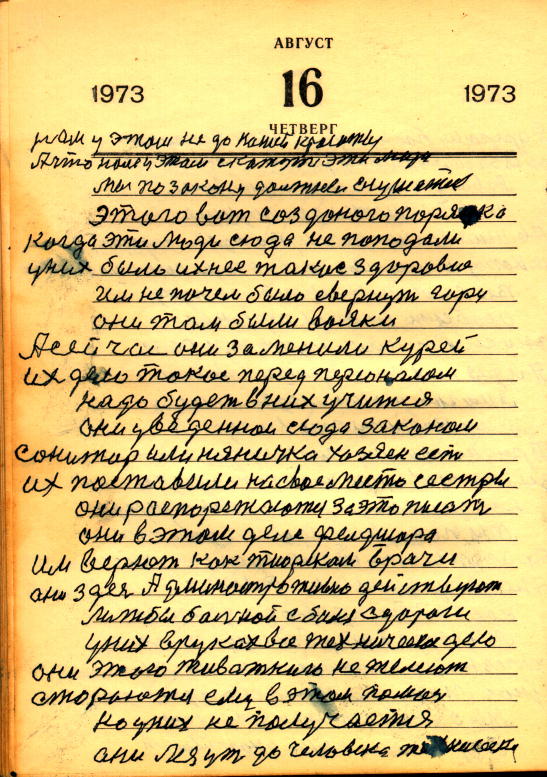 АВГУСТ
1973 16 1973
ЧЕТВЕРГ
у этом не до
А что этом скажут эти люди
мы по закону должны слушатся
этого вот созданого порядка
когда эти люди сюда не поподали
у них было ихнее такое здоровю
им не почем было свернут гору
они там были вояки
А сейчас они заменили курей
их дело такое перед пероналом
надо будет в них учится
они уведенной сюда законом
сонитар или няничка хозяен есть
их поставили на свое место сестры
они распорежают за это писат
они в этом деле фелдшора
им вернот как творкам врачи
они здес Админостротивно действуют
лижбы болной был здоров
у них в руках все техническа дело
они этого живажнего не желеют
стораютя ему в этом помоч
но у них не получается
они лезут до человека